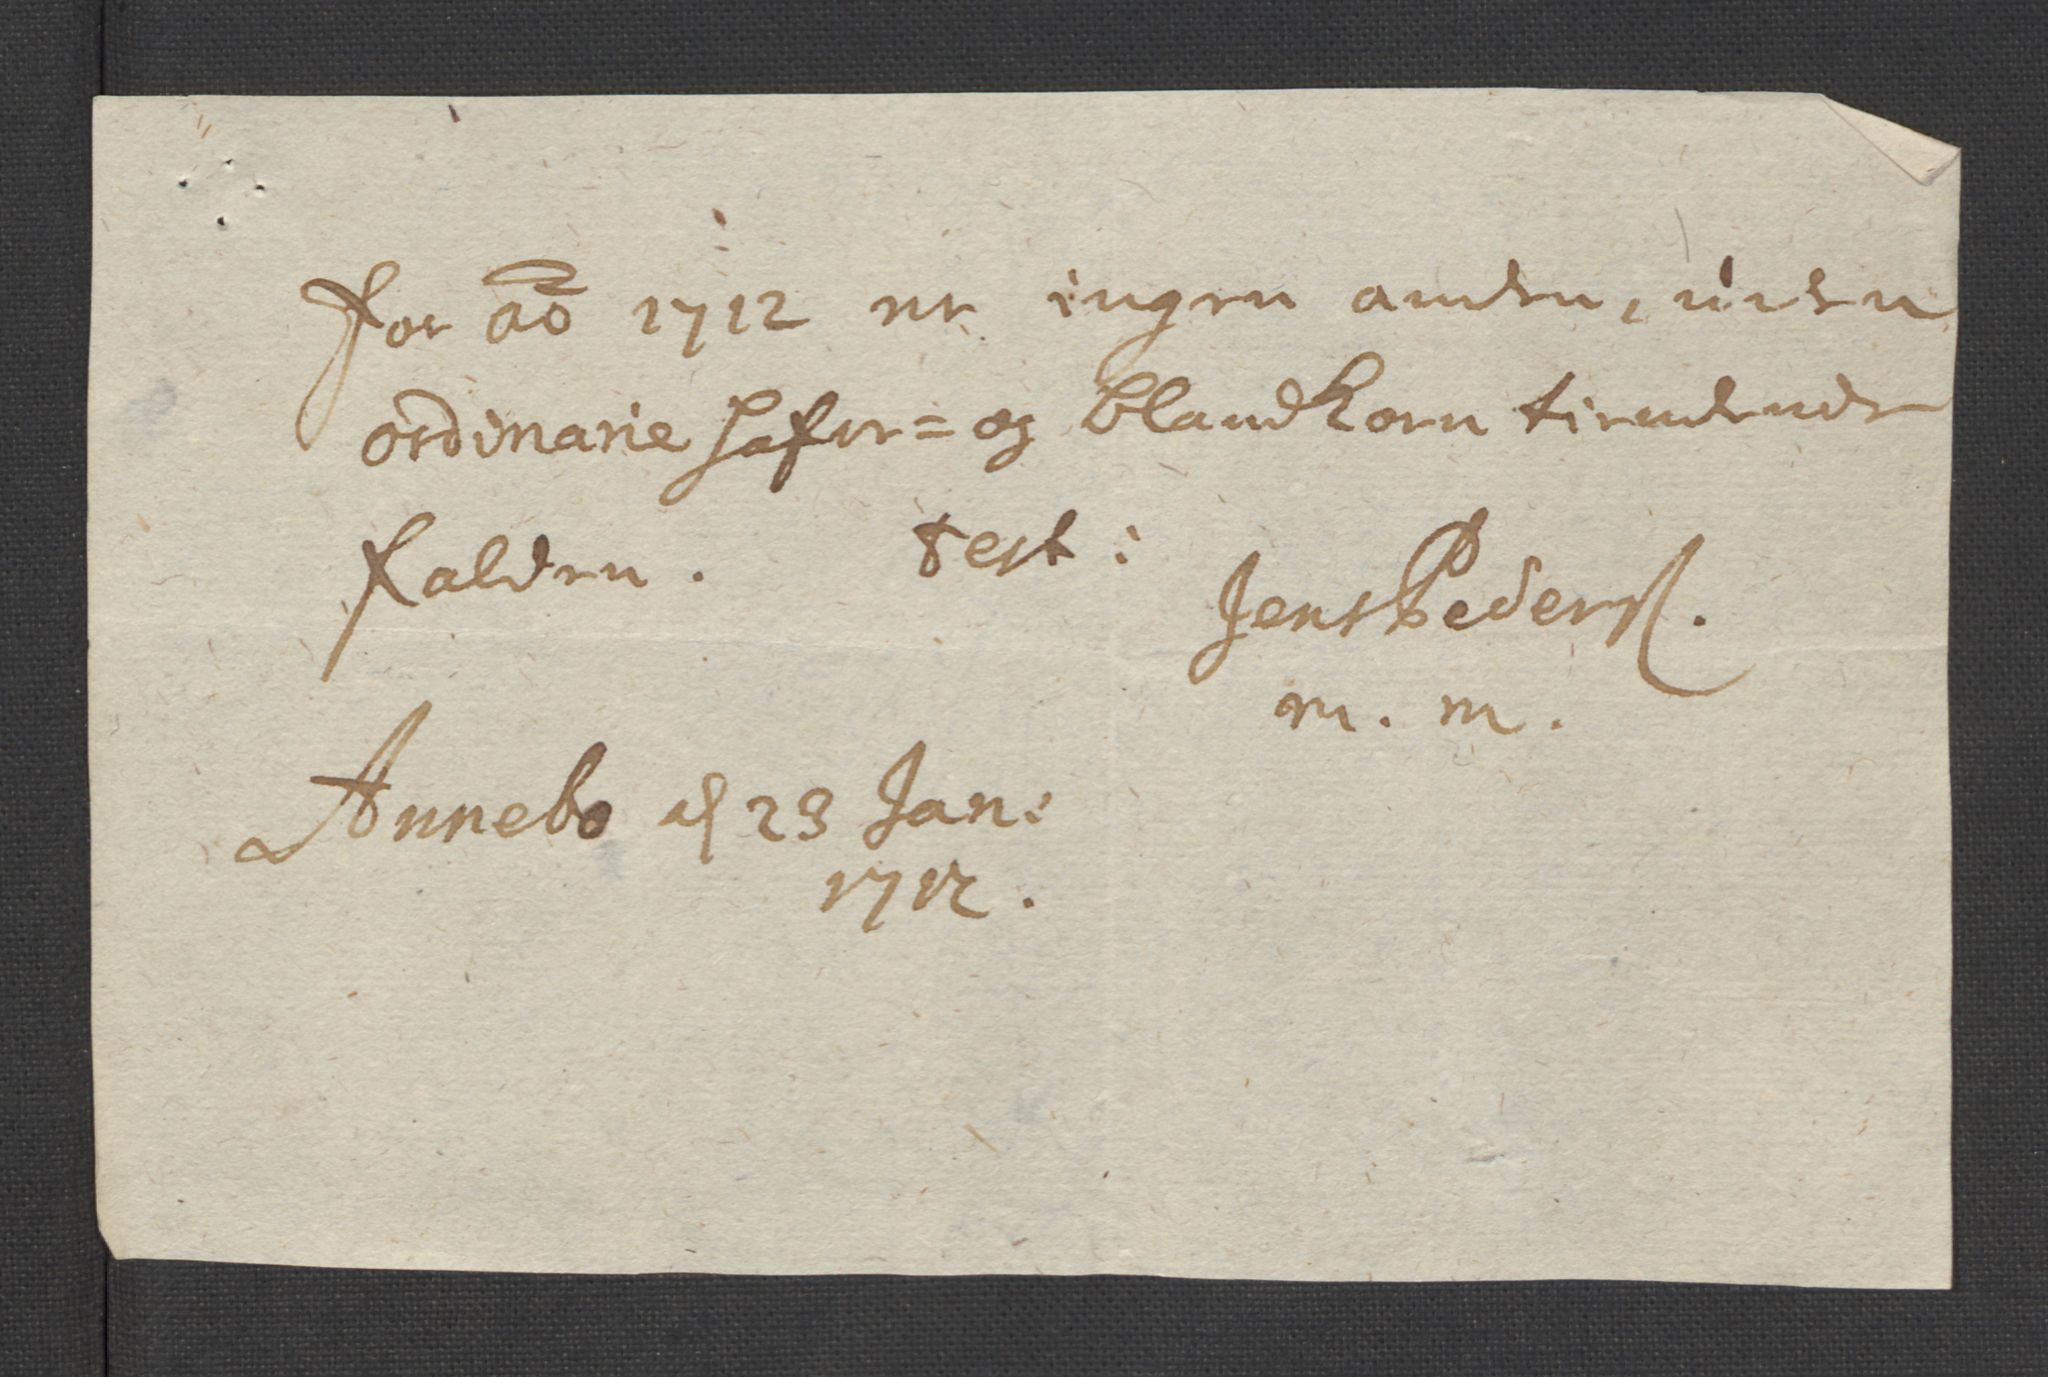 for ao 1712 er ingen anden, uden
ordinarie Hafer= og blandkorn tiende
falden. test:
Jens Pederß.
m. m.
Annebo d 23 Jan:
1712.